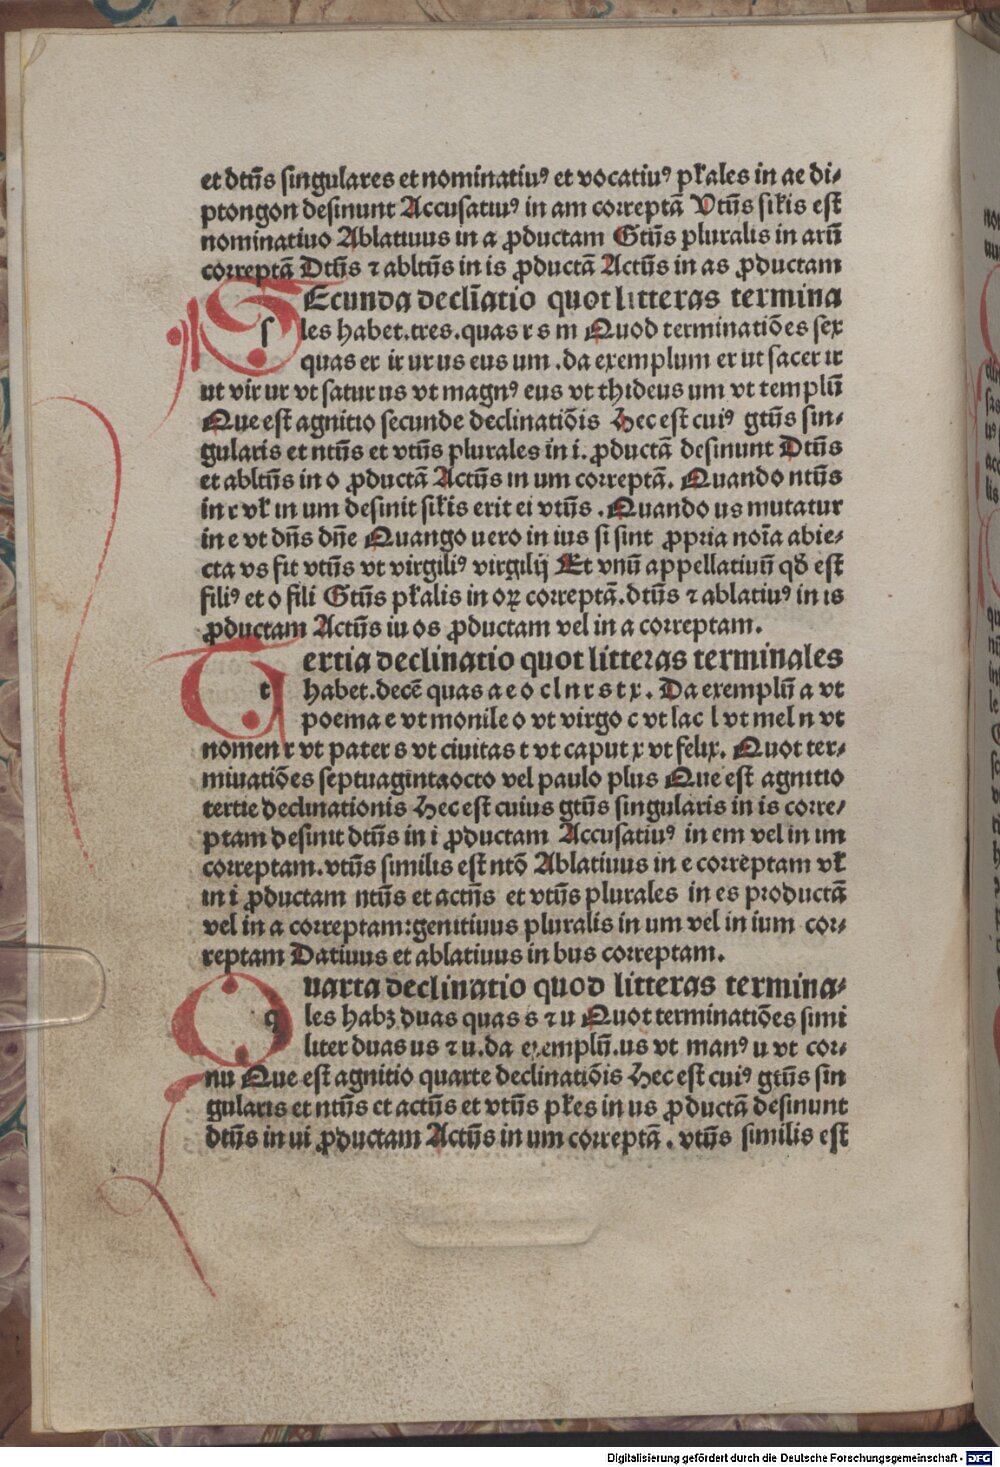 et dtūs singulares et nominatiuꝰ et vocatiuꝰ pꝉales in ae di-
ptongon desinunt Accusatiuꝰ in am correptā Vtūs siꝉis est
nominatiuo Ablatiuus in a ꝓductam Gtūs pluralis in arū
correptā Dtūs ⁊ abltūs in is ꝓductā Actūs in as ꝓductam
SEcunda decliatio quot litteras termina
les habet.tres.quas r s m Quod terminatiōes sex
quas er ir ur us eus um .da exemplum er ut sacer ir
ut vir ur vt satur us vt magnꝰ eus vt thideus um vt templū
Que est agnitio secunde declinatiōis Hec est cuiꝰ gtūs sin-
gularis et ntūs et vtūs plurales in i. ꝓductā desinunt Dtūs
et abltūs in o ꝓductā Actūs in um correptā. Quando ntūs
in r vꝉ in um desinit siꝉis erit ei vtūs .Quando us mutatur
in e vt dn̄s dn̄e Quango uero in ius si sint ꝓpria noīa abie-
cta vs fit vtūs vt virgiliꝰ virgilij Et vnū appellatiuū qđ est
filiꝰ et o fili Gtūs pꝉalis in oꝝ correptā.dtūs ⁊ ablatiuꝰ in is
ꝓductam Actūs iu os ꝓductam vel in a correptam.
Tertia declinatio quot litteras terminales
habet.decē quas a e o c l n r s t x . Da exemplū a vt
poema e vt monile o vt virgo c vt lac l vt mel n vt
nomen r vt pater s vt ciuitas t vt caput x vt felix. Quot ter-
miuatiōes septuagintaocto vel paulo plus Que est agnitio
tertie declinationis Hec est cuius gtūs singularis in is corre-
ptam desinit dtūs in i ꝓductam Accusatiuꝰ in em vel in im
correptam.vtūs similis est ntō Ablatiuus in e correptam vꝉ
in i ꝓductam ntūs et actūs et vtūs plurales in es productā
vel in a correptam:genitiuus pluralis in um vel in ium cor-
reptam Datiuus et ablatiuus in bus correptam.
Quarta declinatio quod litteras termina-
les habꝫ duas quas s ⁊ u Quot terminatiōes simi
liter duas us ⁊ u.da exemplū.us vt manꝰ u vt cor-
nu Que est agnitio quarte declinatiōis Hec est cuiꝰ gtūs sin
gularis et ntūs et actūs et vtūs pꝉes in us ꝓductā desinunt
dtūs in ui ꝓductam Actūs in um correptā . vtūs similis est
Digitalisierung gefördert durch die Deutsche Forschungsgemeinschaft - DFG